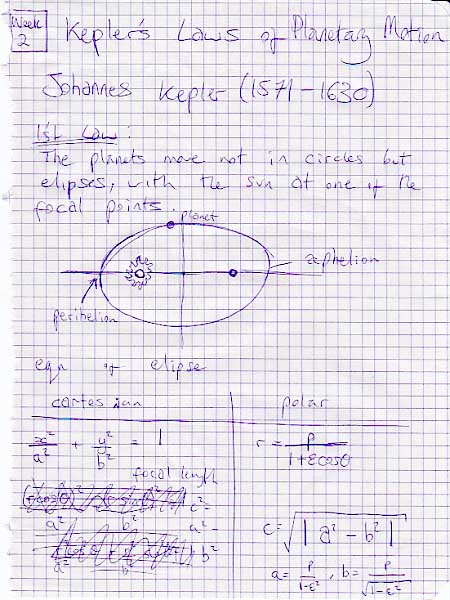 Week 2
Kepler's Laws of Planetary Motion
Johannes Kepler (1571-1630)
1st Law:
The planets move not in circles but
elipses, with the sun at one of the
focal points.
planet
aphelion
perihelion
eqn of elipse
cartesian
polar
x²/a² + y²/b² = 1
r = p/1+εcosθ
focal length
c² =
a² -
b²
c = √|a² - b²|
a = p/1-ε², b = p/√1-ε²